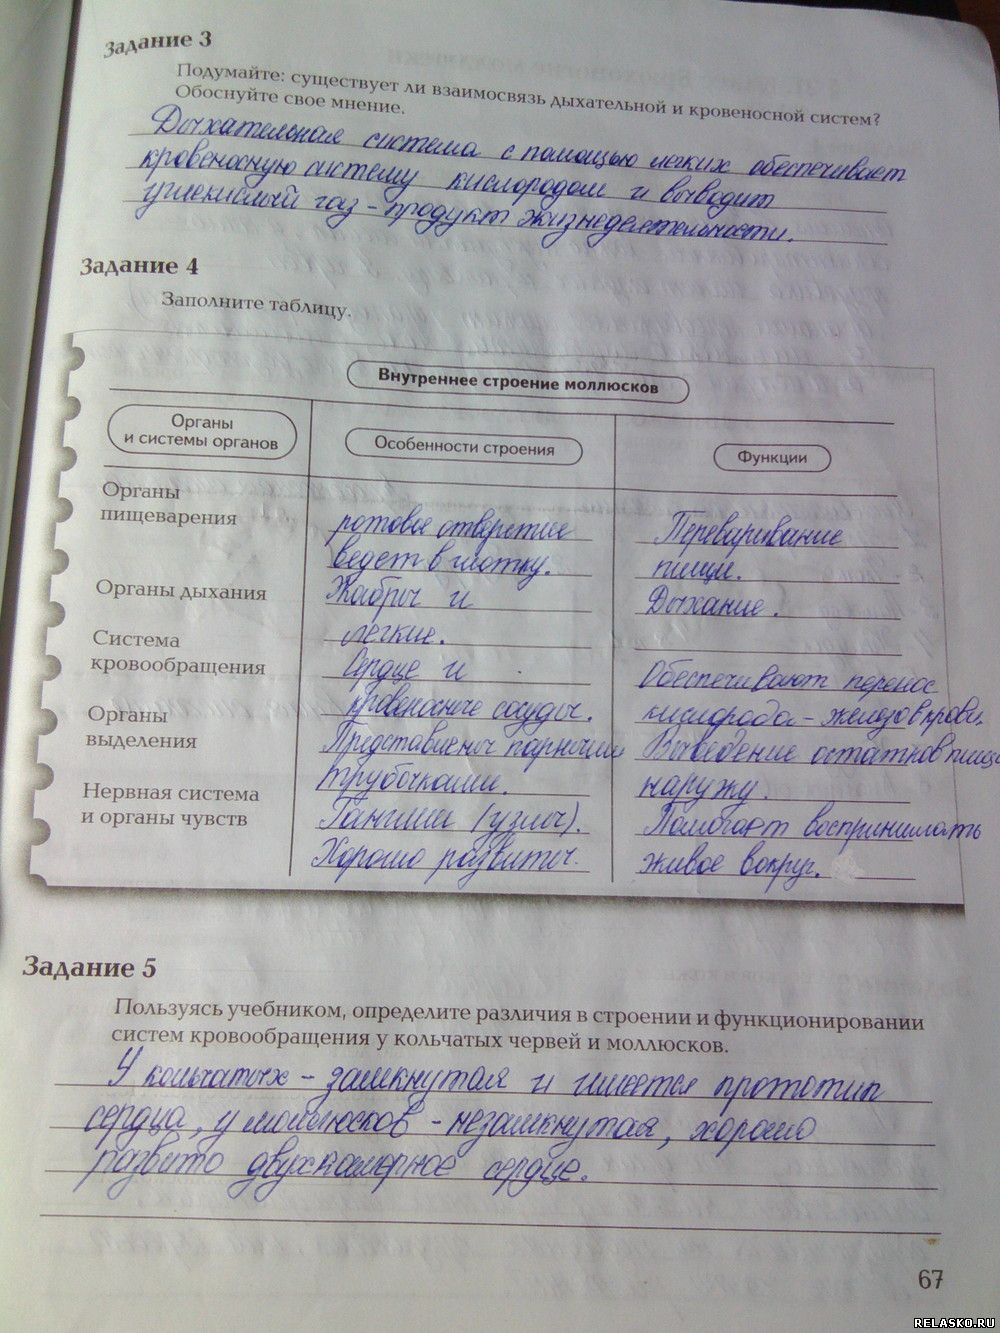 Задание 3
Подумайте: существует ли взаимосвязь дыхательной и кровеносной систем?
Обоснуйте свое мнение.
Дыхательная система с помощью легких обеспечивает
кровеносную систему кислородом и выводит
углекислый газ - продукт жизнедеятельности.
Задание 4
Заполните таблицу.
Внутреннее строение моллюсков
Органы
и системы органов
Особенности строения
Функции
Органы
пищеварения
ротовое отверстие
ведет в глотку.
Переваривание
пищи.
Органы дыхания
Жабры и
легкие.
Дыхание.
Система
кровообращения
Сердце и
кровеносные сосуды.
Обеспечивают перенос
кислорода - железо в крови.
Органы
выделения
Представлены парными
трубочками.
Выведение остатков пищи
наружу.
Нервная система
и органы чувств
Ганглии (узлы).
Хорошо развиты.
Помогают воспринимать
живое вокруг.
Задание 5
Пользуясь учебником, определите различия в строении и функционировании
систем кровообращения у кольчатых червей и моллюсков.
У кольчатых - замкнутая и имеется прототип
сердца, у моллюсков - незамкнутая, хорошо
развито двухкамерное сердце.
67
RELASKO.RU